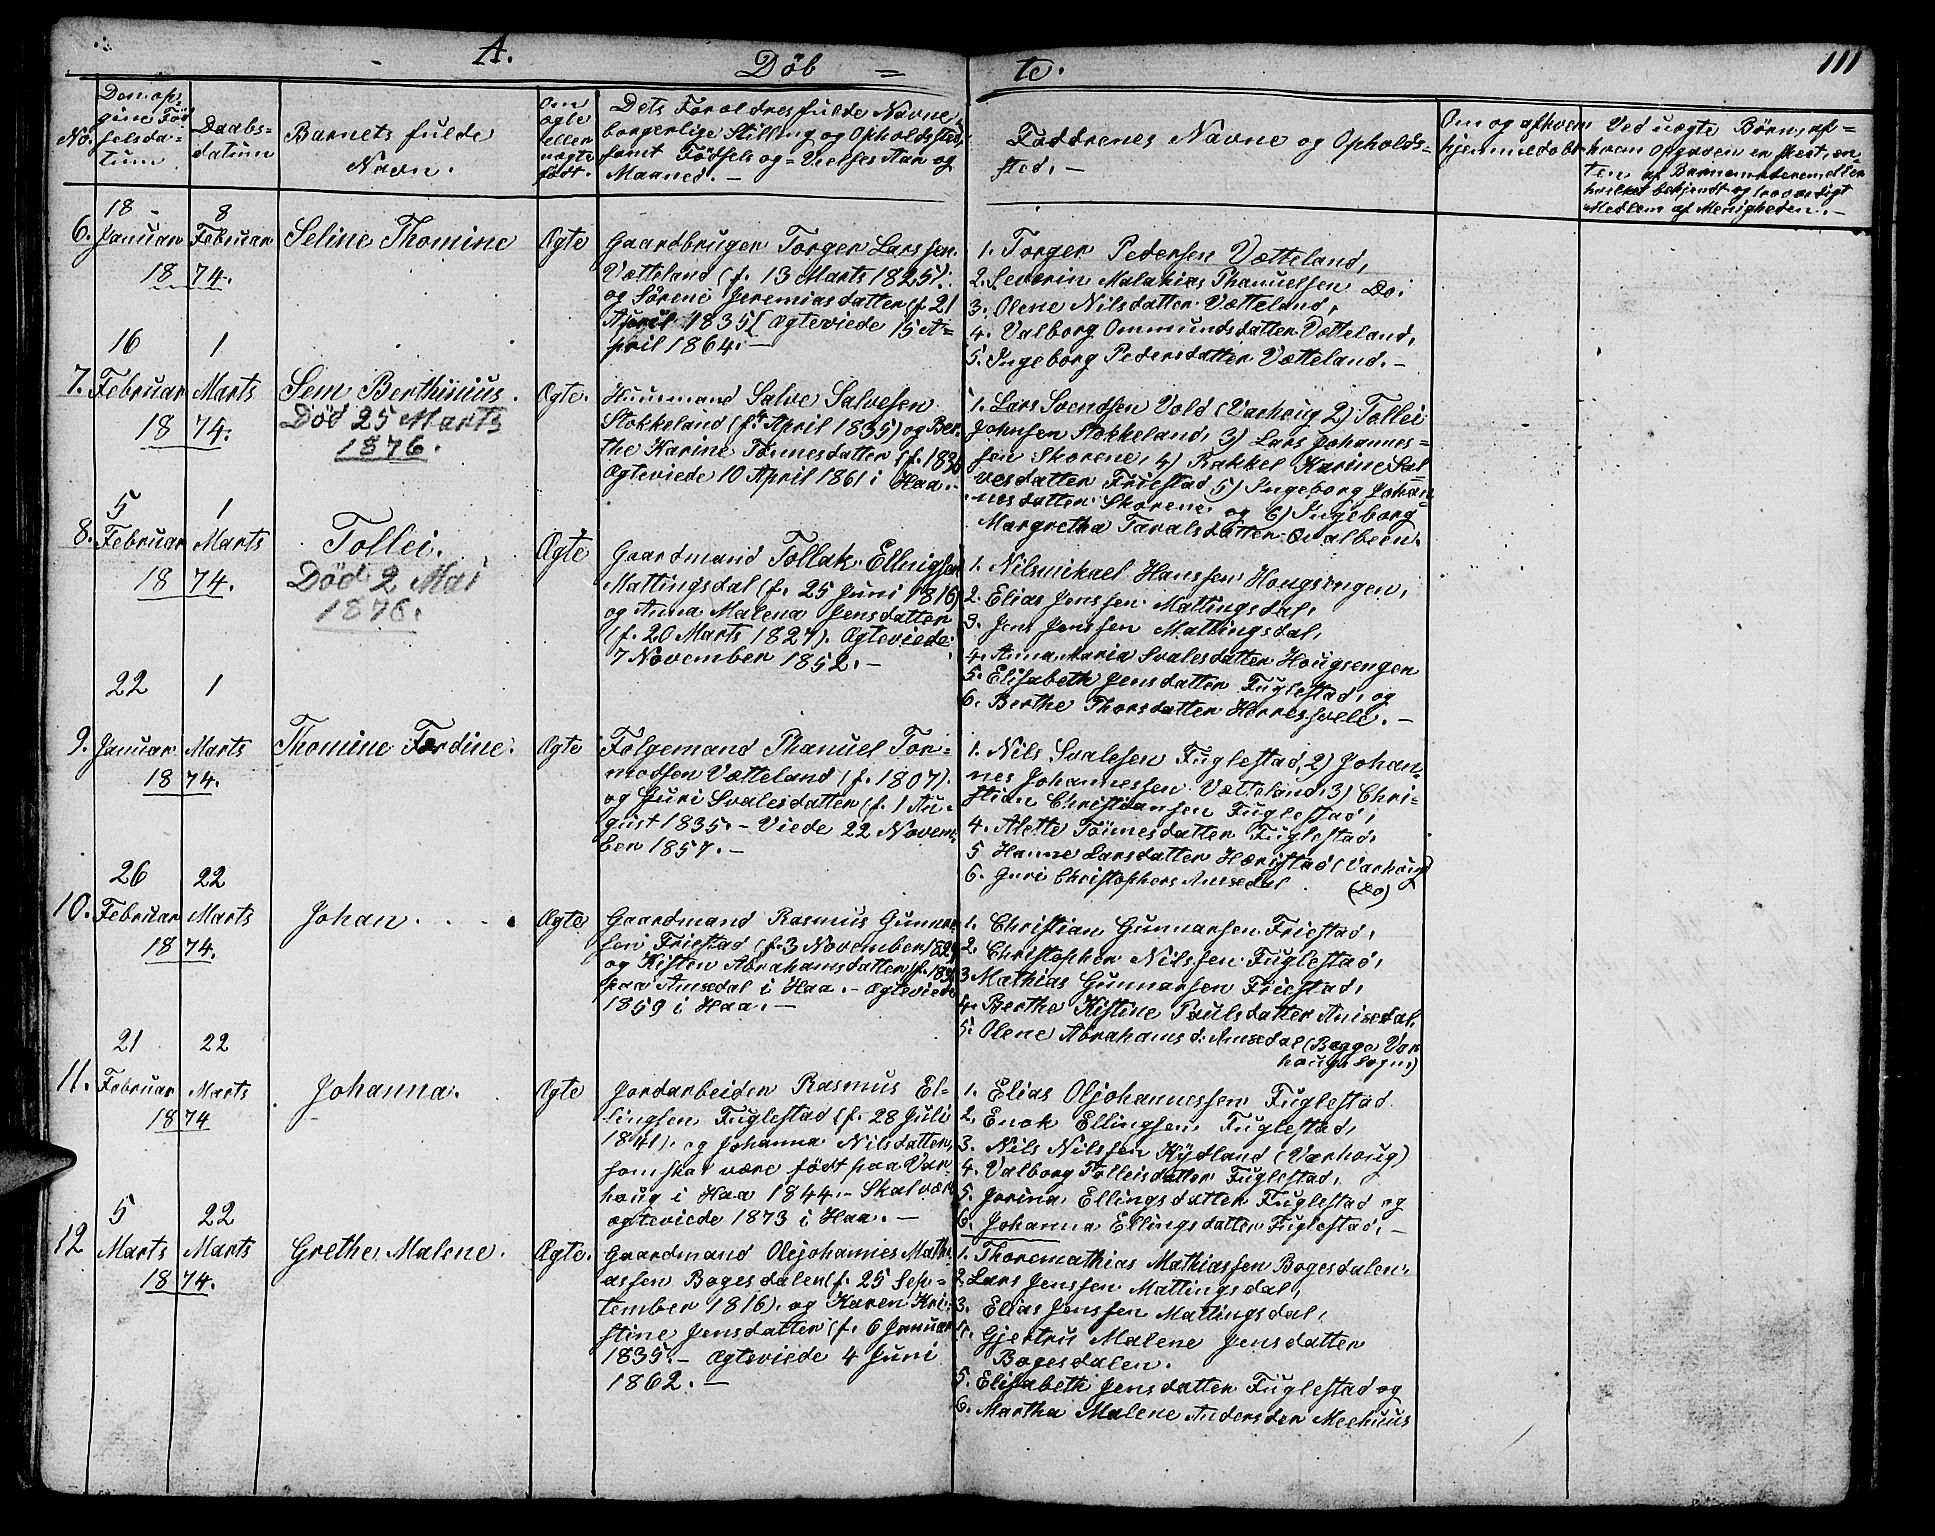 A.
Døb = te.
111
No.
Den op-
givne Fød
selsda-
tum
Daabs-
datum
Barnets fulde
Navn.
Om
ægte
eller
uægte
født.
Dets Forældres fulde Navne,
borgerlige Stilling og Opholdssted,
samt Fødsels og = Vielses Aar og
Maaned. -
Faddrenes Navne og Opholds=
sted. -
Om og af hvem
hjemmedøbt
Ved uægte Børn, af =
hvem Opgaven er skeet, en-
ten af Barnemoderen eller
hvilket bekjendt og troværdigt
Medlem af Menigheden. -
6.
18
Januar
8
Februar
1874.
Seline Thomine
Ægte
Gaardbruger Torger Larssen
Vætteland (f. 13 Marts 1825).
og Sørene Jeremiasdatter (f. 21
April 1835 [Ægteviede 15 A=
pril 1864. -
1. Torger Pedersen Vætteland,
2. Severin Malakias Thanuelsen Do,
3. Olene Nilsdatter Vætteland,
4. Valborg Ommundsdatter Vætteland,
5. Ingeborg Pedersdatter Vætteland. -
7.
16
Februar
1
Marts
1874.
Sem Berthinius.
Død 25 Marts
1876.
Ægte.
Huusmand Salve Salvesen
Stokkeland (f. April 1835) og Ber-
the Karine Tønnesdatter (f. 1836
Ægteviede 10 April 1861 i Haa. -
1. Lars Svendsen Vold (Varhoug 2) Tollei
Johnsen Stokkeland, 3) Lars Johannes=
sen Skorene, 4) Rakkel Karine Sal
vesdatter Friestad 5) Ingeborg Johan
nesdatter Skorene, og 6) Ingeborg
Margretha Tarvalsdatter Qvalbeen.
8.
5
Februar
1
Marts
1874.
Tollei.
Død 2 Mai
1876.
Ægte
Gaardmand Tollak Ellingsen
Mattingsdal (f. 25 Juni 1816)
og Anna Malena Jensdatter
(f. 20 Marts 1827). Ægteviede
7 November 1852. -
1. Nilsmikael Hanssen Hougsengen,
2. Elias Jenssen Mattingsdal,
3. Jens Jenssen Mattingsdal,
4. Anna Maria Svalesdatter Hougsengen
5. Elisabeth Jensdatter Fuglestad, og
6. Berthe Thorsdatter Herresfvele. -
9.
22
Januar
1
Marts
1874.
Thomine Fordine.
Ægte
Følgemand Thanuel Tor=
modsen Vætteland (f. 1807).
og Guri Svalesdatter (f. 1 Au-
gust 1835. - Viede 22 Novem-
ber 1857. -
1. Nils Svalesen Fuglestad, 2) Johan-
nes Johannessen Vætteland 3) Chri-
stian Christiansen Fuglestad,
4. Alette Tønnesdatter Fuglestad,
5 Hanne Larsdatter Hæristad (Varhoug)
6. Guri Christophers Amsedal (Do)
10.
26
Februar
22
Marts
1874.
Johan.
Ægte
Gaardmand Rasmus Gunnar
sen Friestad (f. 3 November 182
og Kisten Abrahamsdatter (f. 183
paa Amsedal i Haa. - Ægteviede
1859 i Haa. -
1. Christian Gunnarsen Friestad,
2. Christopher Nilssen Fuglestad,
3 Mathias Gunnarsen Friestad,
4. Berthe Kistine Paulsdatter Amsedal,
5. Olene Abrahamsd: Amsedal (Begge Var
hougs Sogn.)
11.
21
Februar
22
Marts
1874
Johanna.
Ægte
Jordarbeider Rasmus El-
lingsen Fuglestad (f. 28 Juli
1841). og Johanna Nilsdatter,
som skal være født paa Var-
houg i Haa 1844. - Skal være
ægteviede 1873 i Haa. -
1. Elias Oljohannessen Fuglestad.
2. Enok Ellingsen Fuglestad,
3. Nils Nilssen Kydland (Varhoug)
4. Valborg Tolleisdatter Fuglestad,
5. Jorina Ellingsdatter Fuglestad og
6. Johanna Ellingsdatter Fuglestad, -
12
5
Marts
22
Marts
1874.
Grethe Malene.
Ægte.
Gaardmand Olejohannes Mathi
assen Bogesdalen (f. 25 Sep-
tember 1816). og Karen Kri-
stine Jensdatter (f. 6 Januar
1835. - Ægteviede 4 Juni
1862. -
1. Thoremathias Mathiassen Bogesdalen,
2. Lars Jenssen Mattingsdal,
3. Elias Jenssen Mattingsdal,
4. Gjertru Malene Jensdatter
Bogesdalen.
5. Elisabeth Jensdatter Fuglestad og
6. Martha Malene Andersden Meehuus